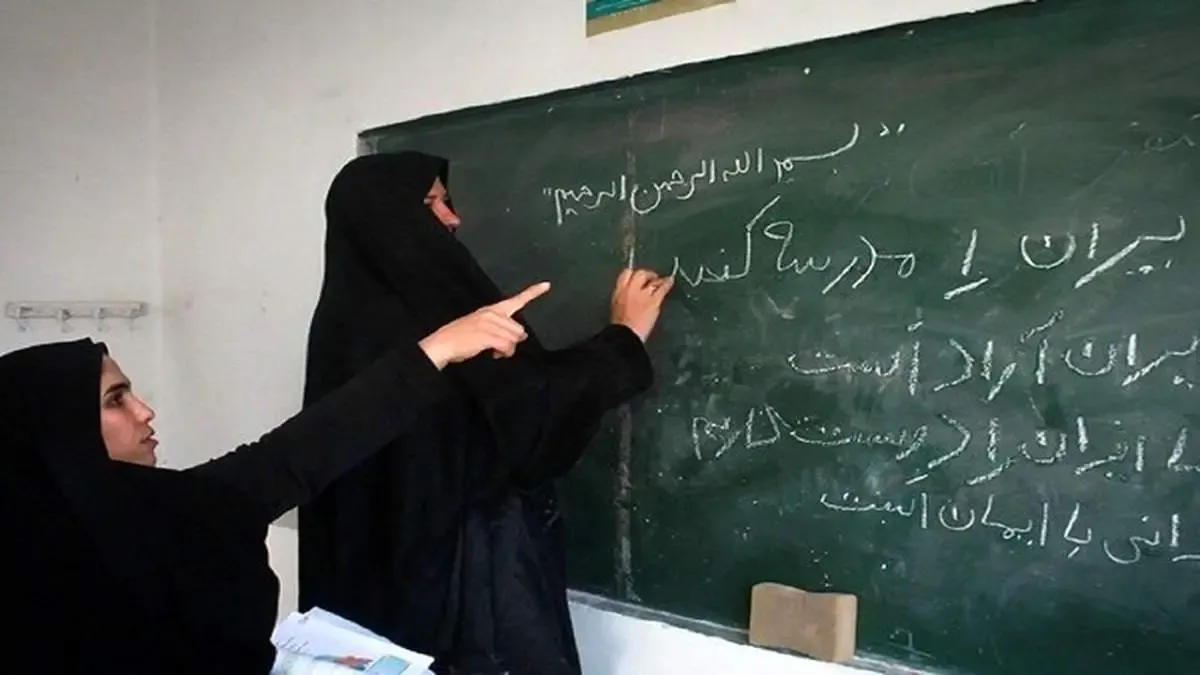 "بسم الله الرحمن الرحیم"
یران را مدرسه کنید
یران آزاد است
ما ایران را دوست داریم
رانی با ایمان است